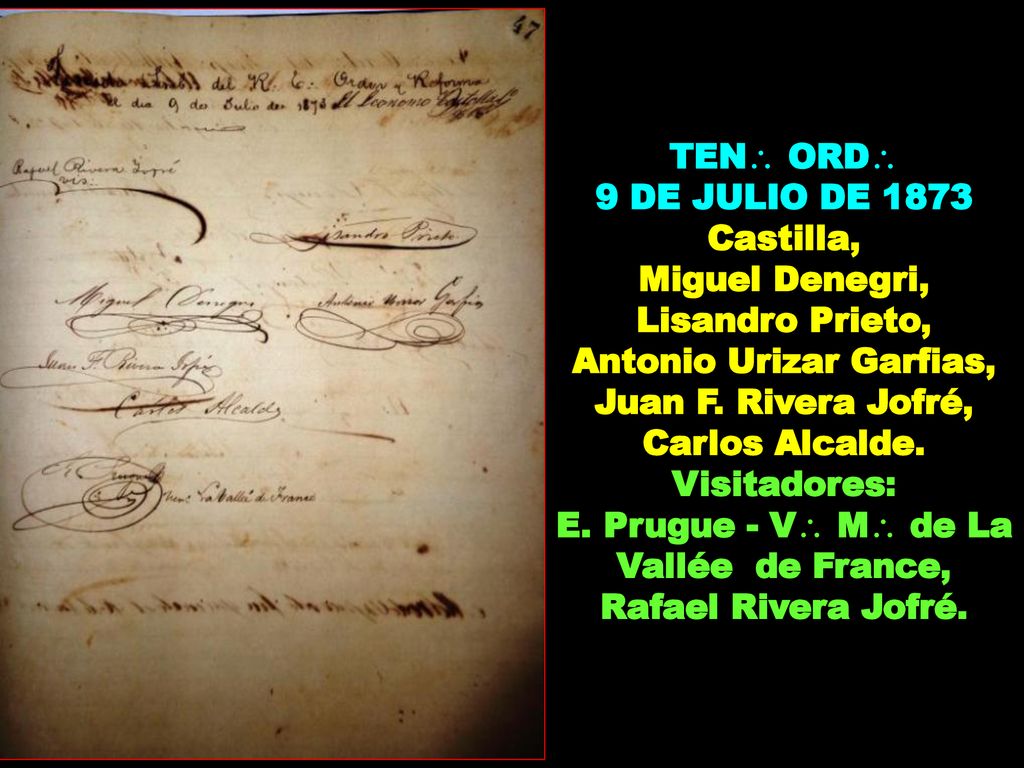 47
del R. E. Orden y Reforma
el dia 9 de Julio de 1873 El Economo
Rafael Rivera Jofré
vis.
Lisandro Prieto
Miguel Denegri
Antonio Urizar Garfias
Juan F. Rivera Jofré
Carlos Alcalde
E. Prugue
Ven. La Vallée de France
TEN∴ ORD∴
9 DE JULIO DE 1873
Castilla,
Miguel Denegri,
Lisandro Prieto,
Antonio Urizar Garfias,
Juan F. Rivera Jofré,
Carlos Alcalde.
Visitadores:
E. Prugue - V∴ M∴ de La
Vallée de France,
Rafael Rivera Jofré.